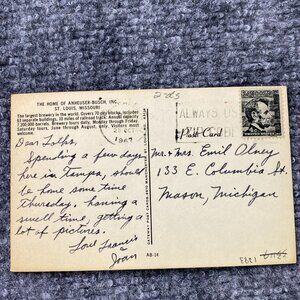 THE HOME OF ANHEUSER-BUSCH, INC.
ST. LOUIS, MISSOURI
The largest brewery in the world. Covers 70 city blocks, includes
63 separate buildings, 10 miles of railroad track. Annual capacity
7,200,000 barrels. Brewery tours daily, Monday through Friday.
Saturday tours, June through August, only. Visitors most
welcome.
Dear Folks,
Spending a few days
here in Tampa, should
be home some time
thursday. having a
swell time, getting a
lot of pictures.
Love Francis
Joan
AB-14
2 cds
1967
ALWAYS US
Post Card
Mr. & Mrs. Emil Olney
133 E. Columbia St.
Mason, Michigan